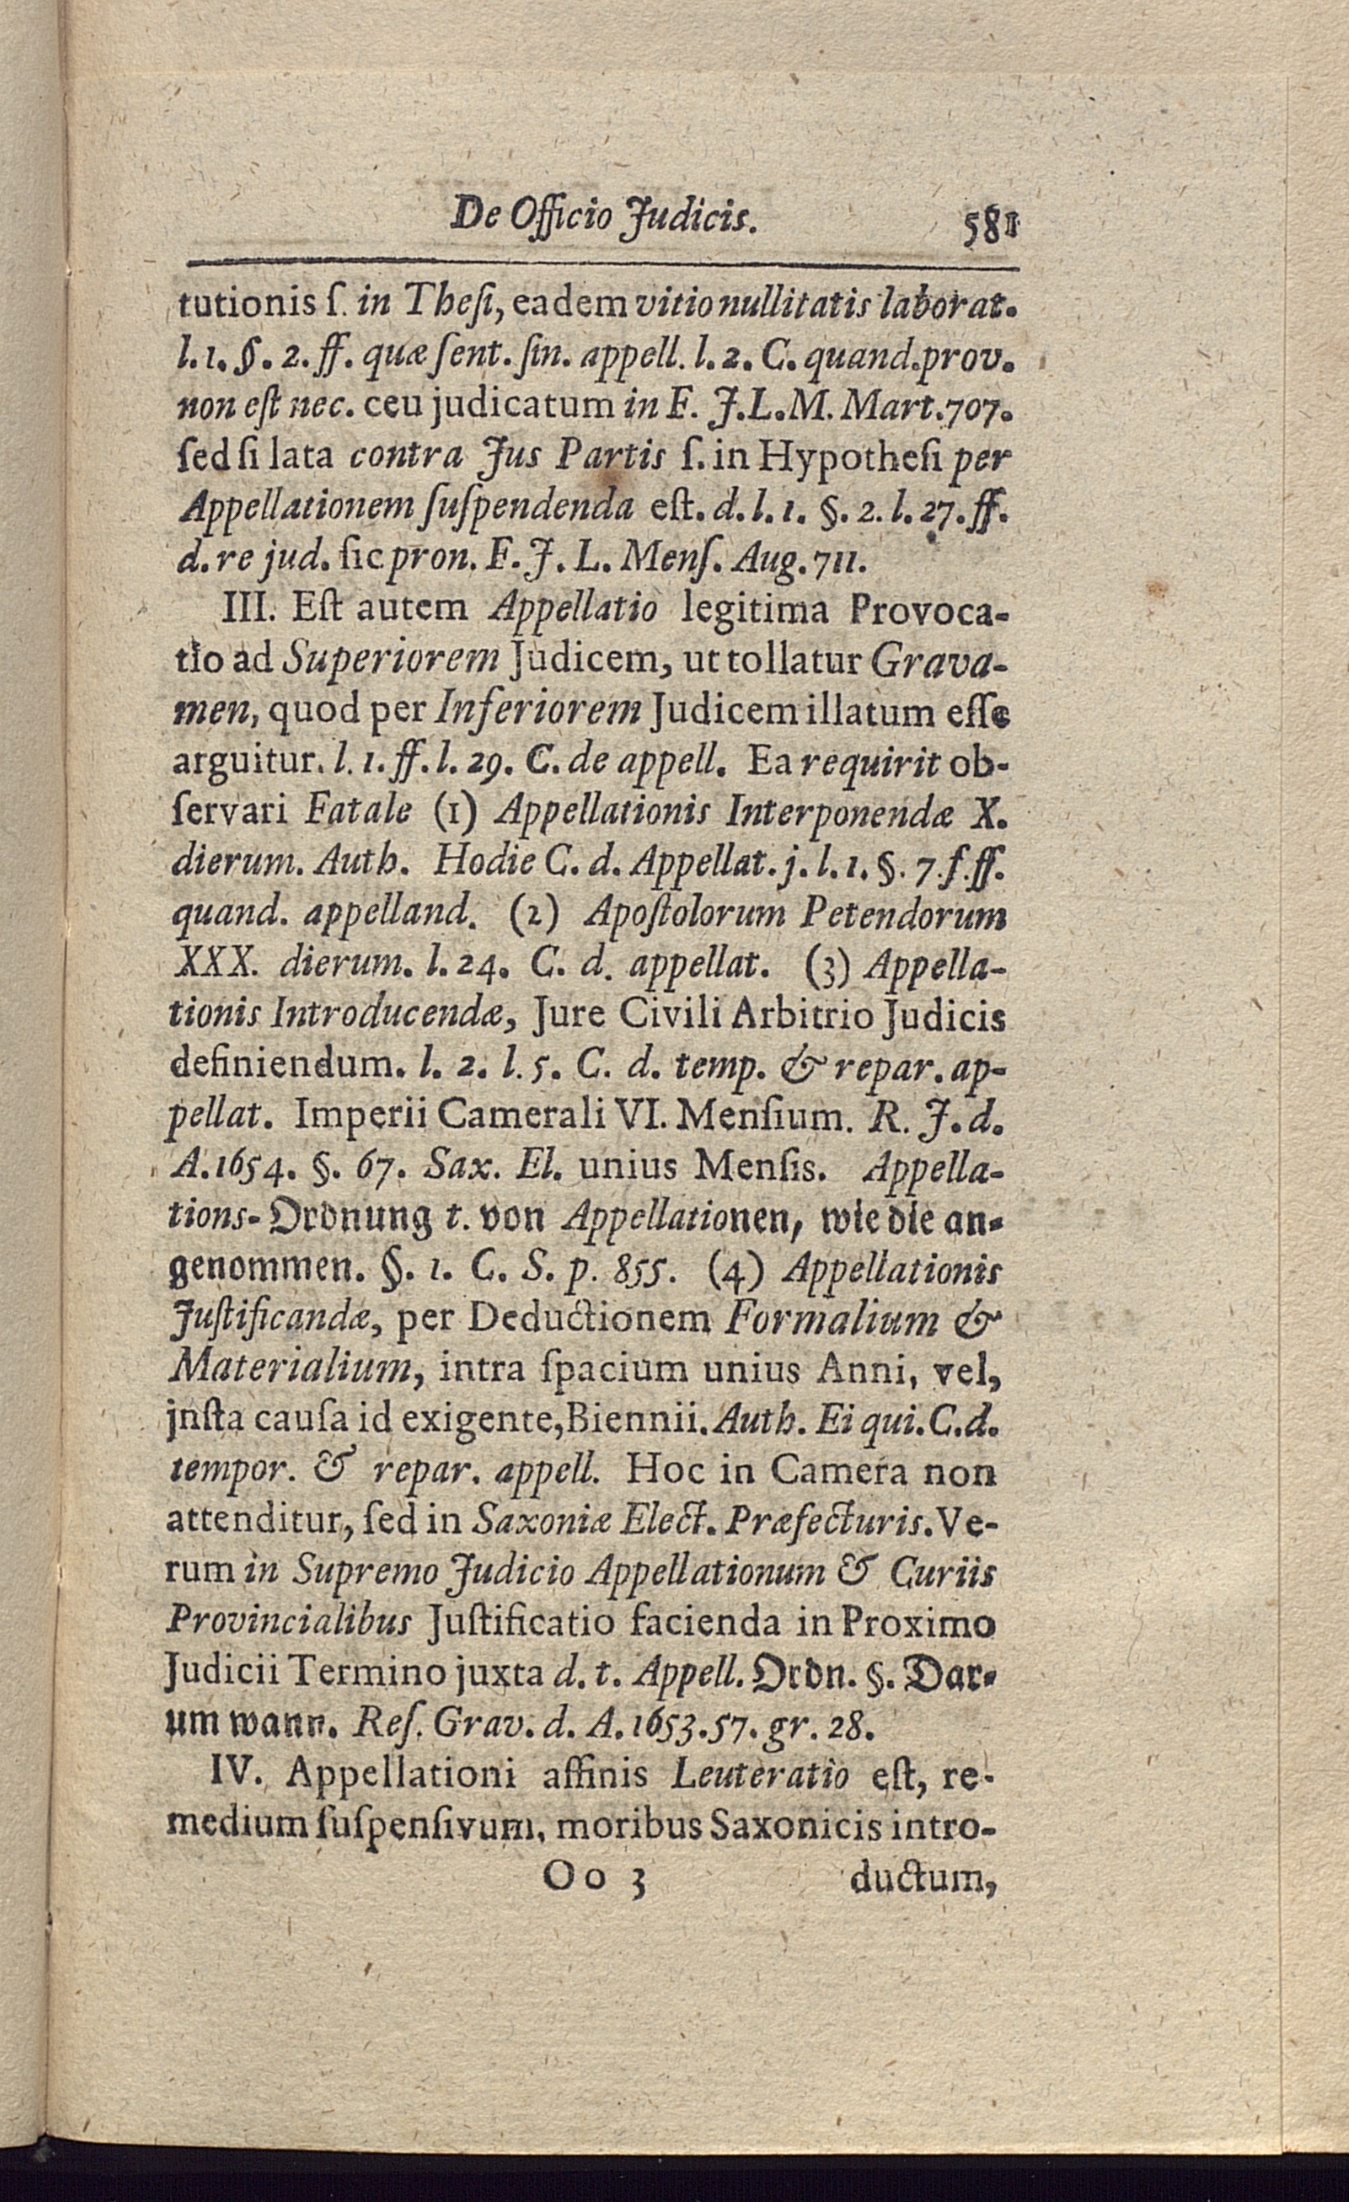 De Officio Judicis. 581
tutionis ſ. in Theſi, eadem vitio nullitatis laborat.
l. 1. §. 2. ff. quæ ſent. ſin. appell. l. 2. C. quand. prov.
non eſt nec. ceu judicatum in F. J. L. M. Mart. 707.
ſed ſi lata contra Jus Partis ſ. in Hypotheſi per
Appellationem ſuſpendenda eſt. d. l. 1. §. 2. l. 27. ff.
d. re jud. ſic pron. F. J. L. Menſ. Aug. 711.
III. Eſt autem Appellatio legitima Provoca-
tio ad Superiorem Judicem, ut tollatur Grava-
men, quod per Inferiorem Judicem illatum eſſe
arguitur. l. 1. ff. l. 29. C. de appell. Ea requirit ob-
ſervari Fatale (1) Appellationis Interponendæ X.
dierum. Auth. Hodie C. d. Appellat. j. l. 1. §. 7. f. ff.
quand. appelland. (2) Apoſtolorum Petendorum
XXX. dierum. l. 24. C. d. appellat. (3) Appella-
tionis Introducendæ, Jure Civili Arbitrio Judicis
definiendum. l. 2. l. 5. C. d. temp. & repar. ap-
pellat. Imperii Camerali VI. Menſium. R. J. d.
A. 1654. §. 67. Sax. El. unius Menſis. Appella-
tions-Ordnung t. von Appellationen, wie die an-
genommen. §. 1. C. S. p. 855. (4) Appellationis
Juſtificandæ, per Deductionem Formalium &
Materialium, intra ſpacium unius Anni, vel,
jnſta cauſa id exigente, Biennii. Auth. Ei qui. C. d.
tempor. & repar. appell. Hoc in Camera non
attenditur, ſed in Saxoniæ Elect. Præfecturis. Ve-
rum in Supremo Judicio Appellationum & Curiis
Provincialibus Juſtificatio facienda in Proximo
Judicii Termino juxta d. t. Appell. Ordn. §. Dar-
um wann. Reſ. Grav. d. A. 1653. 57. gr. 28.
IV. Appellationi affinis Leuteratio eſt, re-
medium ſuſpenſivum, moribus Saxonicis intro-
Oo 3 ductum,